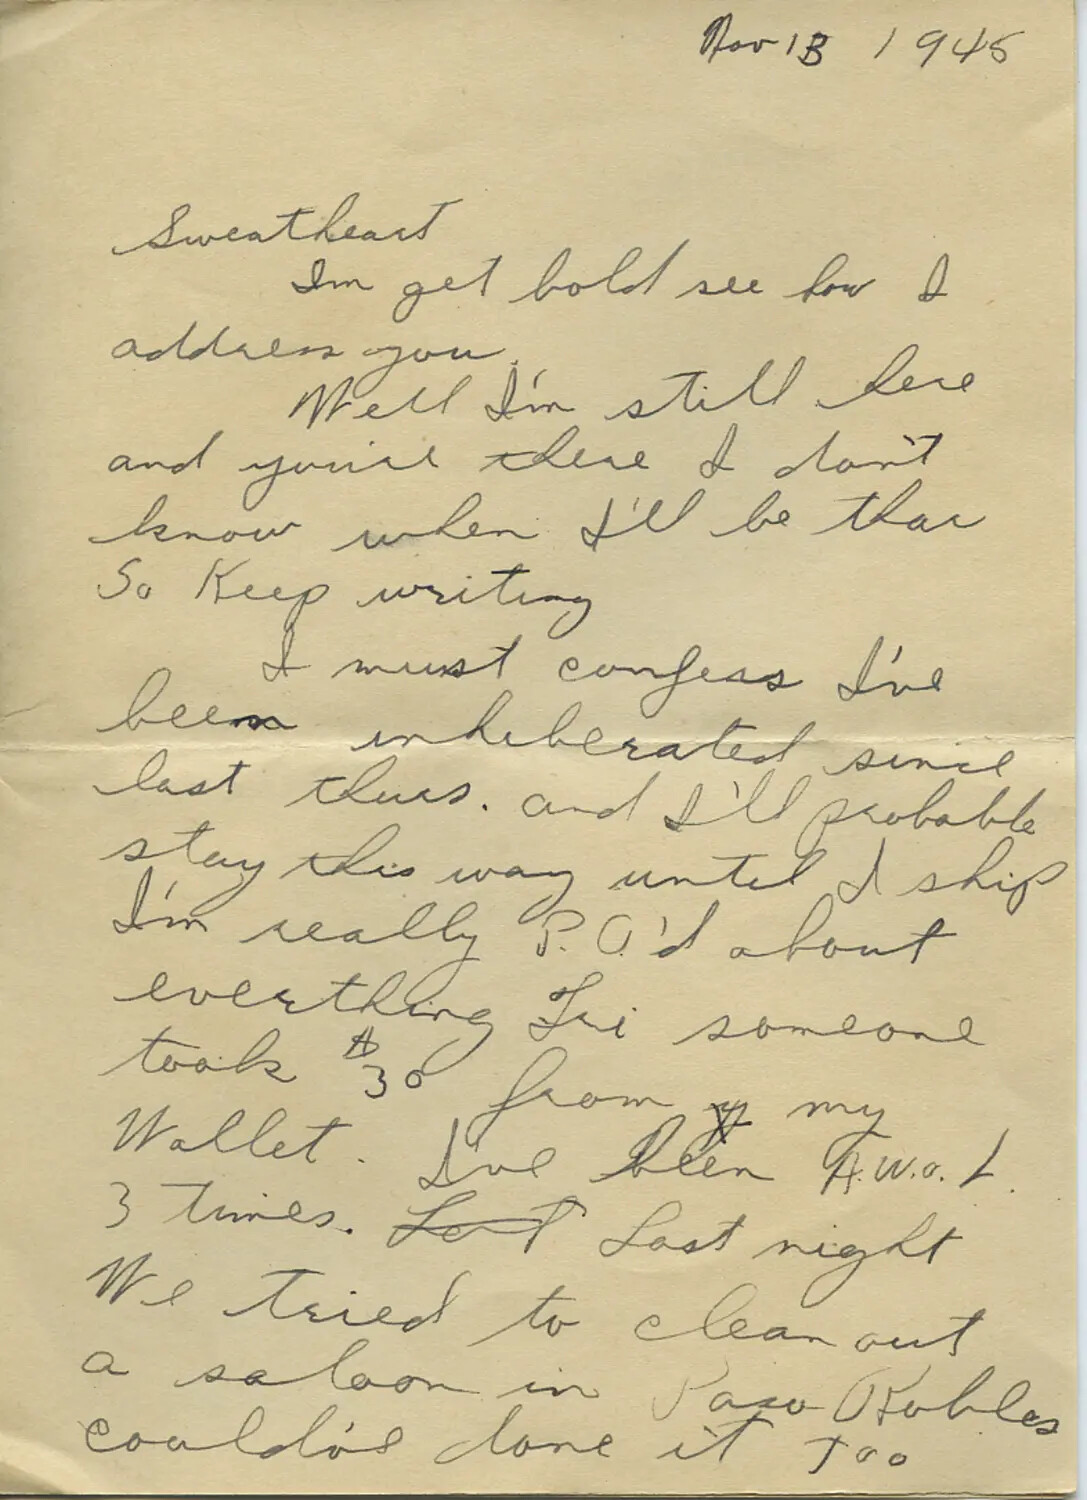 Nov 13 1945
Sweatheart
Im get bold see how I
address you.
Well I'm still here
and you're there I don't
know when I'll be thar
So Keep writing
I must confess I've
been inheberated since
last thurs. and I'll probable
stay this way until I ship
I'm really P.O.'d about
everthing Fri someone
took $30 from my
Wallet. I've been A.W.O.L.
3 times. Last night
We tried to clean out
a saloon in Paso Robles
could've done it too